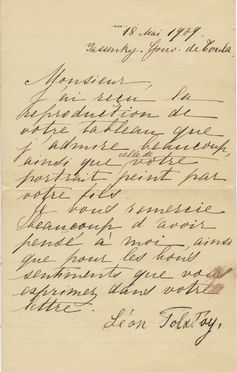 18 Mai 1909.
Jassenky. Gouv. de Toula
Monsieur,
J'ai reçu la
reproduction de
votre tableau que
j'admire beaucoup,
ainsi que celle de votre
portrait peint par
votre fils.
Je vous remercie
beaucoup d'avoir
pensé à moi ainsi
que pour les bons
sentiments que vous
exprimez dans votre
lettre.
Léon Tolstoy.